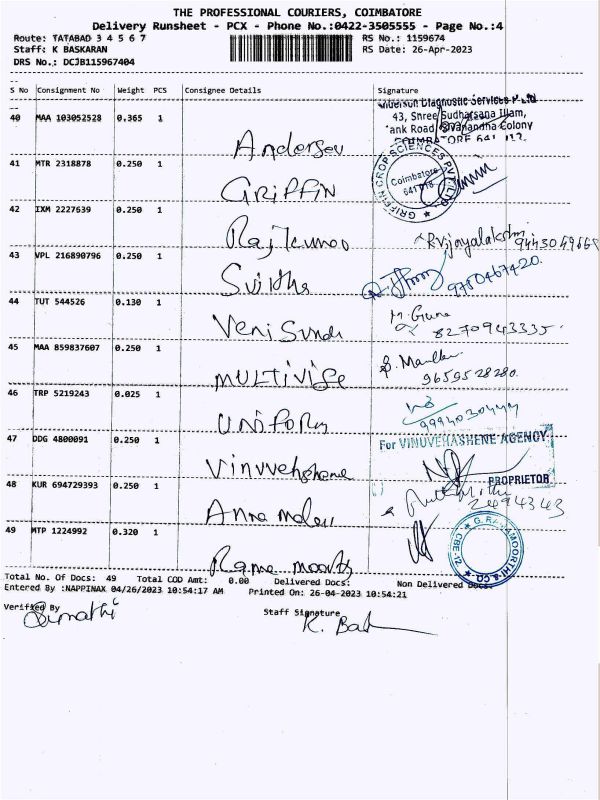 THE PROFESSIONAL COURIERS, COIMBATORE
Delivery Runsheet - PCX - Phone No.:0422-3505555 - Page No.:4
Route: TATABAD 3 4 5 6 7 RS No.: 1159674
Staff: K BASKARAN RS Date: 26-Apr-2023
DRS No.: DCJB115967404
S No Consignment No Weight PCS Consignee Details Signature
40 MAA 103052528 0.365 1 Anderson Diagnostic Services P Ltd
43, Shree Sudharsana Illam,
ank Road, Sivanandha Colony
COIMBATORE 641 012.
41 MTR 2318878 0.250 1 GRIFFIN GRIFFIN CROP SCIENCES PVT LTD Coimbatore 641 018
42 IXM 2227639 0.250 1 Rajkumar R Vijayalakshmi
43 VPL 216890796 0.250 1 9780467420
44 TUT 544526 0.130 1 8270943335
45 MAA 859837607 0.250 1 MULTIVISE 9659528280
46 TRP 5219243 0.025 1 UNIFORM
47 DDG 4800091 0.250 1 Vinuvehshene For VINUVEHASHENE AGENCY
PROPRIETOR
48 KUR 694729393 0.250 1 2494343
49 MTP 1224992 0.320 1 Rama moorthy G. RAMAMOORTHI & CO CBE-12
Total No. Of Docs: 49 Total COD Amt: 0.00 Delivered Docs: Non Delivered Docs:
Entered By :NAPPINAX 04/26/2023 10:54:17 AM Printed On: 26-04-2023 10:54:21
Verified By Staff Signature
K. Bak